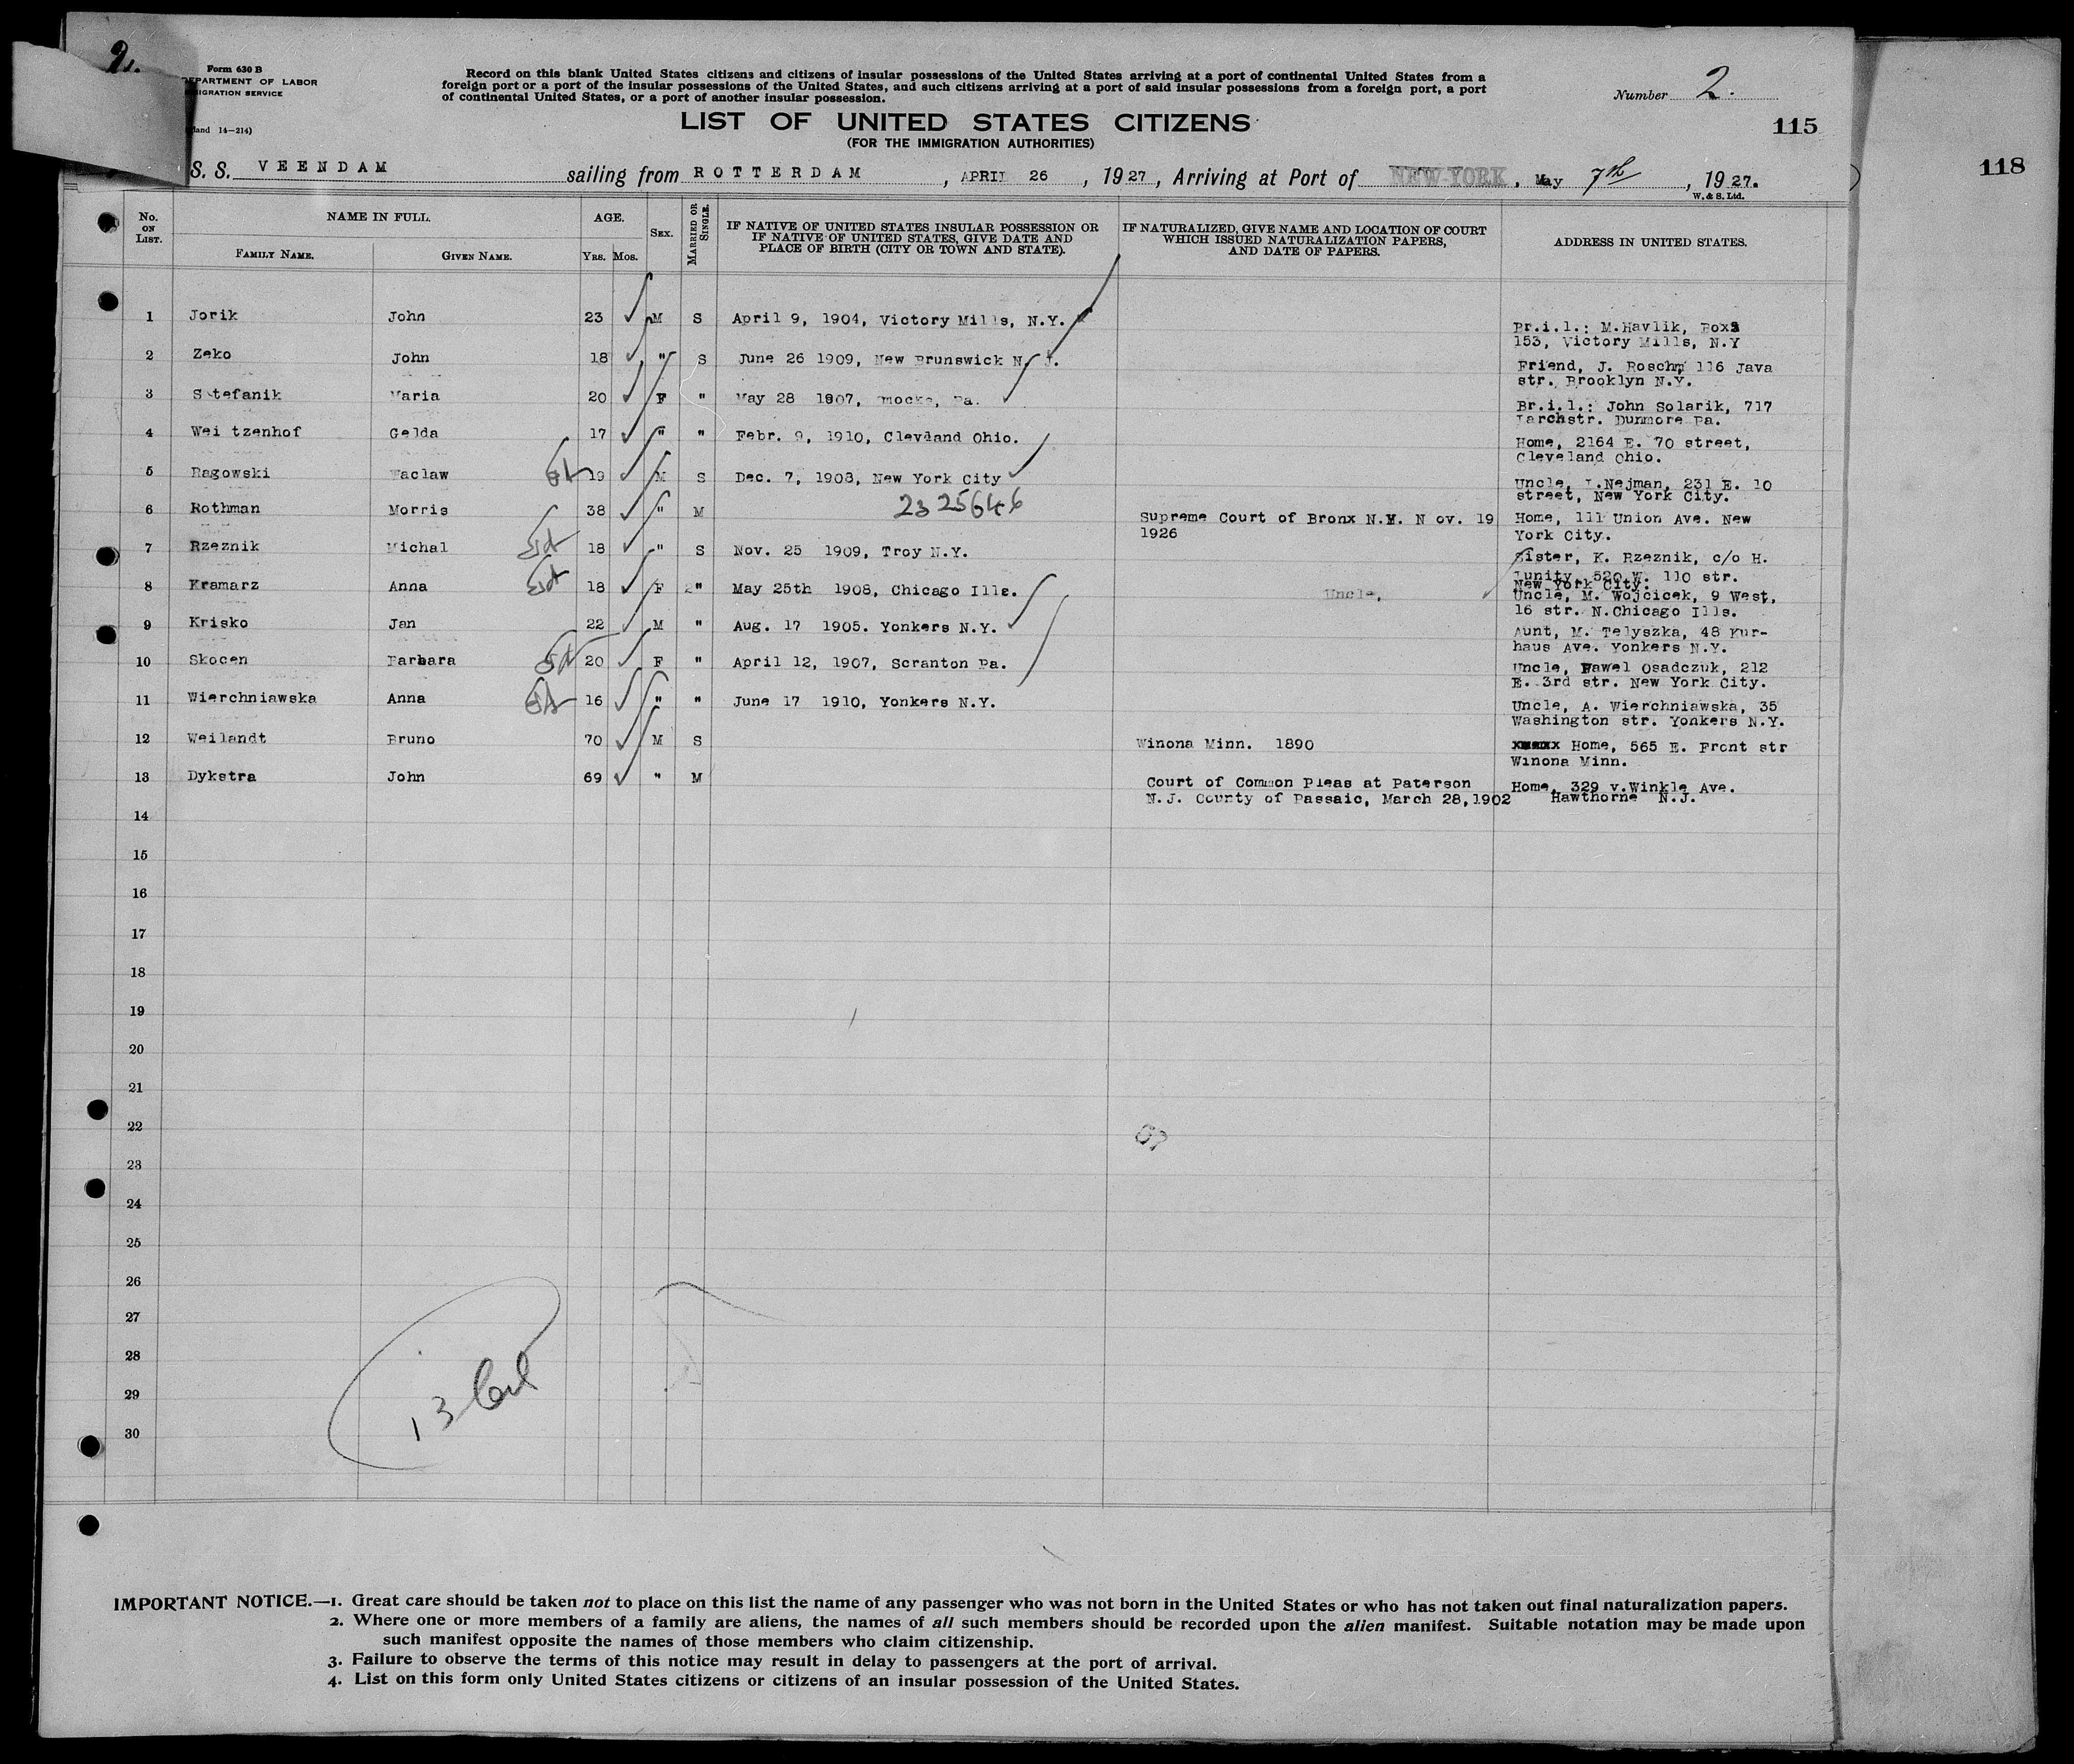 2.
Form 630 B
DEPARTMENT OF LABOR
IMMIGRATION SERVICE
14—214)
Record on this blank United States citizens and citizens of insular possessions of the United States arriving at a port of continental United States from a
foreign port or a port of the insular possessions of the United States, and such citizens arriving at a port of said insular possessions from a foreign port, a port
of continental United States, or a port of another insular possession.
Number 2.
LIST OF UNITED STATES CITIZENS
(FOR THE IMMIGRATION AUTHORITIES)
115
118
S. S. VEENDAM sailing from ROTTERDAM, APRIL 26, 1927, Arriving at Port of NEW YORK, May 7th, 1927.
W. & S. Ltd.
No. ON LIST. NAME IN FULL. AGE. SEX. MARRIED OR SINGLE. IF NATIVE OF UNITED STATES INSULAR POSSESSION OR IF NATIVE OF UNITED STATES, GIVE DATE AND PLACE OF BIRTH (CITY OR TOWN AND STATE). IF NATURALIZED, GIVE NAME AND LOCATION OF COURT WHICH ISSUED NATURALIZATION PAPERS, AND DATE OF PAPERS. ADDRESS IN UNITED STATES.
FAMILY NAME. GIVEN NAME. YRS. MOS.
1 Jorik John 23 M S April 9, 1904, Victory Mills, N.Y. Br.i.l.: M.Havlik, Box
153, Victory Mills, N.Y
2 Zeko John 18 " S June 26 1909, New Brunswick N. J. Friend, J. 116 Java
str. Brooklyn N.Y.
3 Stefanik Maria 20 F " May 28 1907, Pa. Br.i.l.: John Solarik, 717
Larchstr. Dunmore Pa.
4 Weitzenhof Gelda 17 " " Febr. 9, 1910, Clevland Ohio. Home, 2164 E. 70 street,
Cleveland Ohio.
5 Ragowski Waclaw 19 M S Dec. 7, 1908, New York City Uncle, I.Nejman, 231 E. 10
street, New York City.
2325646
6 Rothman Morris 38 " M Supreme Court of Bronx N.Y. Nov. 19 Home, 111 Union Ave. New
1926 York City.
7 Rzeznik Michal 18 " S Nov. 25 1909, Troy N.Y. Sister, K. Rzeznik, c/o H.
Lunity, 520 W. 110 str.
New York City.
8 Kramarz Anna 18 F " May 25th 1908, Chicago Ills. Uncle, Uncle, M. Wojcicek, 9 West,
16 str. N.Chicago Ills.
9 Krisko Jan 22 M " Aug. 17 1905. Yonkers N.Y. Aunt, M. Telyszka, 48 Kur-
haus Ave. Yonkers N.Y.
10 Skocen Barbara 20 F " April 12, 1907, Scranton Pa. Uncle, Pawel Osadczuk, 212
E. 3rd str. New York City.
11 Wierchniawska Anna 16 " " June 17 1910, Yonkers N.Y. Uncle, A. Wierchniawska, 35
Washington str. Yonkers N.Y.
12 Weilandt Bruno 70 M S Winona Minn. 1890 Home, 565 E. Front str
Winona Minn.
13 Dykstra John 69 " M Court of Common Pleas at Paterson Home, 329 v.Winkle Ave.
N.J. County of Passaic, March 28,1902 Hawthorne N.J.
14
15
16
17
18
19
20
21
22
23
24
25
26
27
28
29
30
13
IMPORTANT NOTICE.—1. Great care should be taken not to place on this list the name of any passenger who was not born in the United States or who has not taken out final naturalization papers.
2. Where one or more members of a family are aliens, the names of all such members should be recorded upon the alien manifest. Suitable notation may be made upon
such manifest opposite the names of those members who claim citizenship.
3. Failure to observe the terms of this notice may result in delay to passengers at the port of arrival.
4. List on this form only United States citizens or citizens of an insular possession of the United States.